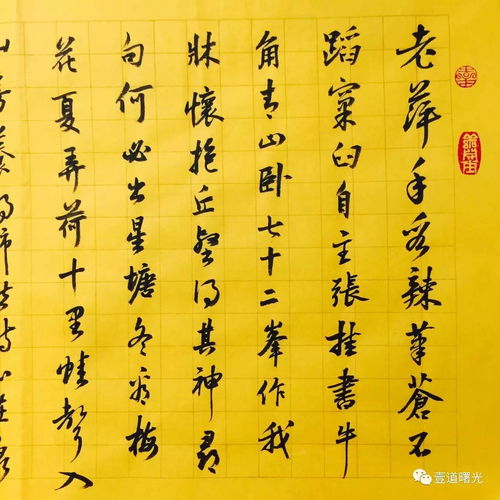 老萍手段辣筆蒼石
蹈窠臼自主張挂書牛
角青山卧七十二峯作我
牀懷抱丘壑得其神尋
句何必出星塘冬尋梅
花夏弄荷十里蛙聲入
壹道曙光